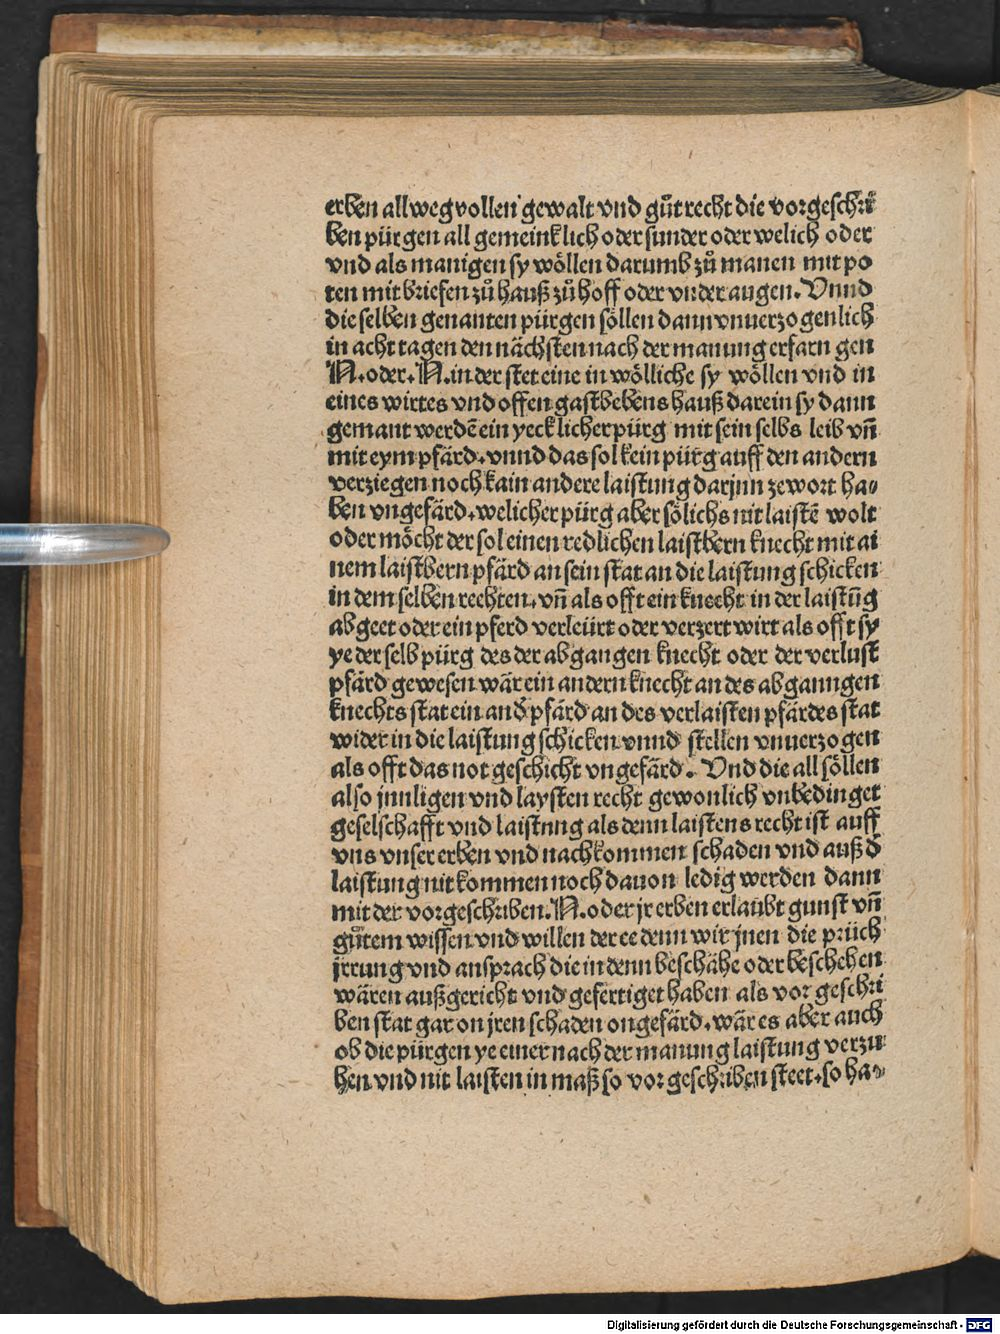 erben allweg vollen gewalt vnd gůt recht die vorgeschri
ben pürgen all gemeinklich oder sunder oder welich oder
vnd als manigen sy wöllen darumb zů manen mit po
ten mit briefen zů hauß zů hoff oder vnder augen. Vnnd
die selben genanten pürgen söllen dann vnuerzogenlich
in acht tagen den nächsten nach der manung erfarn gen
N. oder. N. in der stet eine in wölliche sy wöllen vnd in
eines wirtes vnd offen gastbebens hauß darein sy dann
gemant werdē ein yecklicher pürg mit sein selbs leib vn̄
mit eym pfärd. vnnd das sol kein pürg auff den andern
verziegen noch kain andere laistung darjnn zewort ha⸗
ben vngefärd. welicher pürg aber sölichs nit laistē wolt
oder möcht der sol einen redlichen laistbern knecht mit ai
nem laistbern pfärd an sein stat an die laistung schicken
in dem selben rechten. vn̄ als offt ein knecht in der laistūg
abgeet oder ein pferd verleürt oder verzert wirt als offt sy
ye der selb pürg des der abgangen knecht oder der verlust
pfärd gewesen wär ein andern knecht an des abganngen
knechts stat ein and̓ pfärd an des verlaisten pfärdes stat
wider in die laistung schicken vnnd stellen vnuerzogen
als offt das not geschicht vngefärd. Vnd die all söllen
also jnnligen vnd laysten recht gewonlich vnbedinget
geselschafft vnd laistnng als denn laistens recht ist auff
vns vnser erben vnd nachkommen schaden vnd auß d̓
laistung nit kommen noch dauon ledig werden dann
mit der vorgeschriben. N. oder jr erben erlaubt gunst vn̄
gůtem wissen vnd willen der ee denn wir jnen die prüch
jrrung vnd ansprach die in denn beschähe oder beschehen
wären außgericht vnd gefertiget haben als vor geschri
ben stat gar on jren schaden ongefärd. wär es aber auch
ob die pürgen ye einer nach der manung laistung verzu
hen vnd nit laisten in maß so vor geschriben steet. so ha⸗
Digitalisierung gefördert durch die Deutsche Forschungsgemeinschaft - DFG